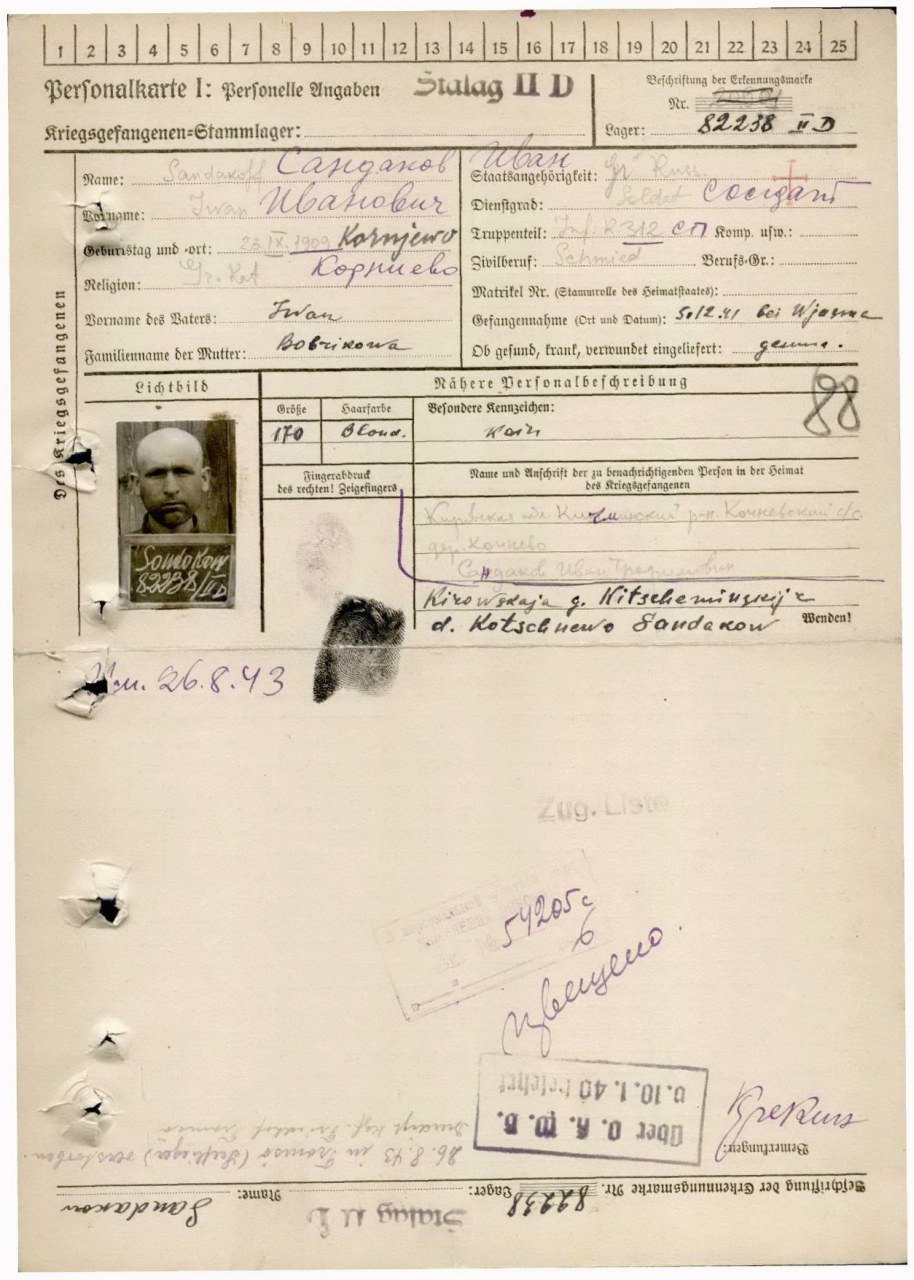 1 2 3 4 5 6 7 8 9 10 11 12 13 14 15 16 17 18 19 20 21 22 23 24 25
Personalkarte I: Personelle Angaben
Stalag II D
Kriegsgefangenen=Stammlager:
Beschriftung der Erkennungsmarke
Nr.
Lager: 82238 II D
Des Kriegsgefangenen
Name: Sandakoff Сандаков Иван
Vorname: Iwan Иванович
Geburtstag und =ort: 23.IX.1909 Kornjewo
Корниево
Religion: Gr. Kat
Vorname des Vaters: Iwan
Familienname der Mutter: Bobrikowa
Staatsangehörigkeit: Russ.
Dienstgrad: Soldat Солдат
Truppenteil: Inf. R 312 СП Komp. usw.:
Zivilberuf: Schmied Berufs=Gr.:
Matrikel Nr. (Stammrolle des Heimatstaates):
Gefangennahme (Ort und Datum): 5.12.41 bei Wjasma
Ob gesund, krank, verwundet eingeliefert:
Lichtbild
Nähere Personalbeschreibung
88
Größe
170
Haarfarbe
Blond.
Besondere Kennzeichen:
Kein
Fingerabdruck
des rechten! Zeigefingers
Name und Anschrift der zu benachrichtigenden Person in der Heimat
des Kriegsgefangenen
Кировская обл. р-н. Кочневский с/с.
дер. Кочнево
Сандаков Иван
Kirowskaja g.
d. Kotschnewo Sandakow
Wenden!
Sandakow
82238/II D
26.8.43
Zug. Liste
54205с
6
Über O. K. W. B.
v. 10. 1. 40 belehrt
Bemerkungen:
26.8.43 in Tromsö verstorben.
Beschriftung der Erkennungsmarke Nr. 82238 Lager: Stalag II D Name: Sandakow